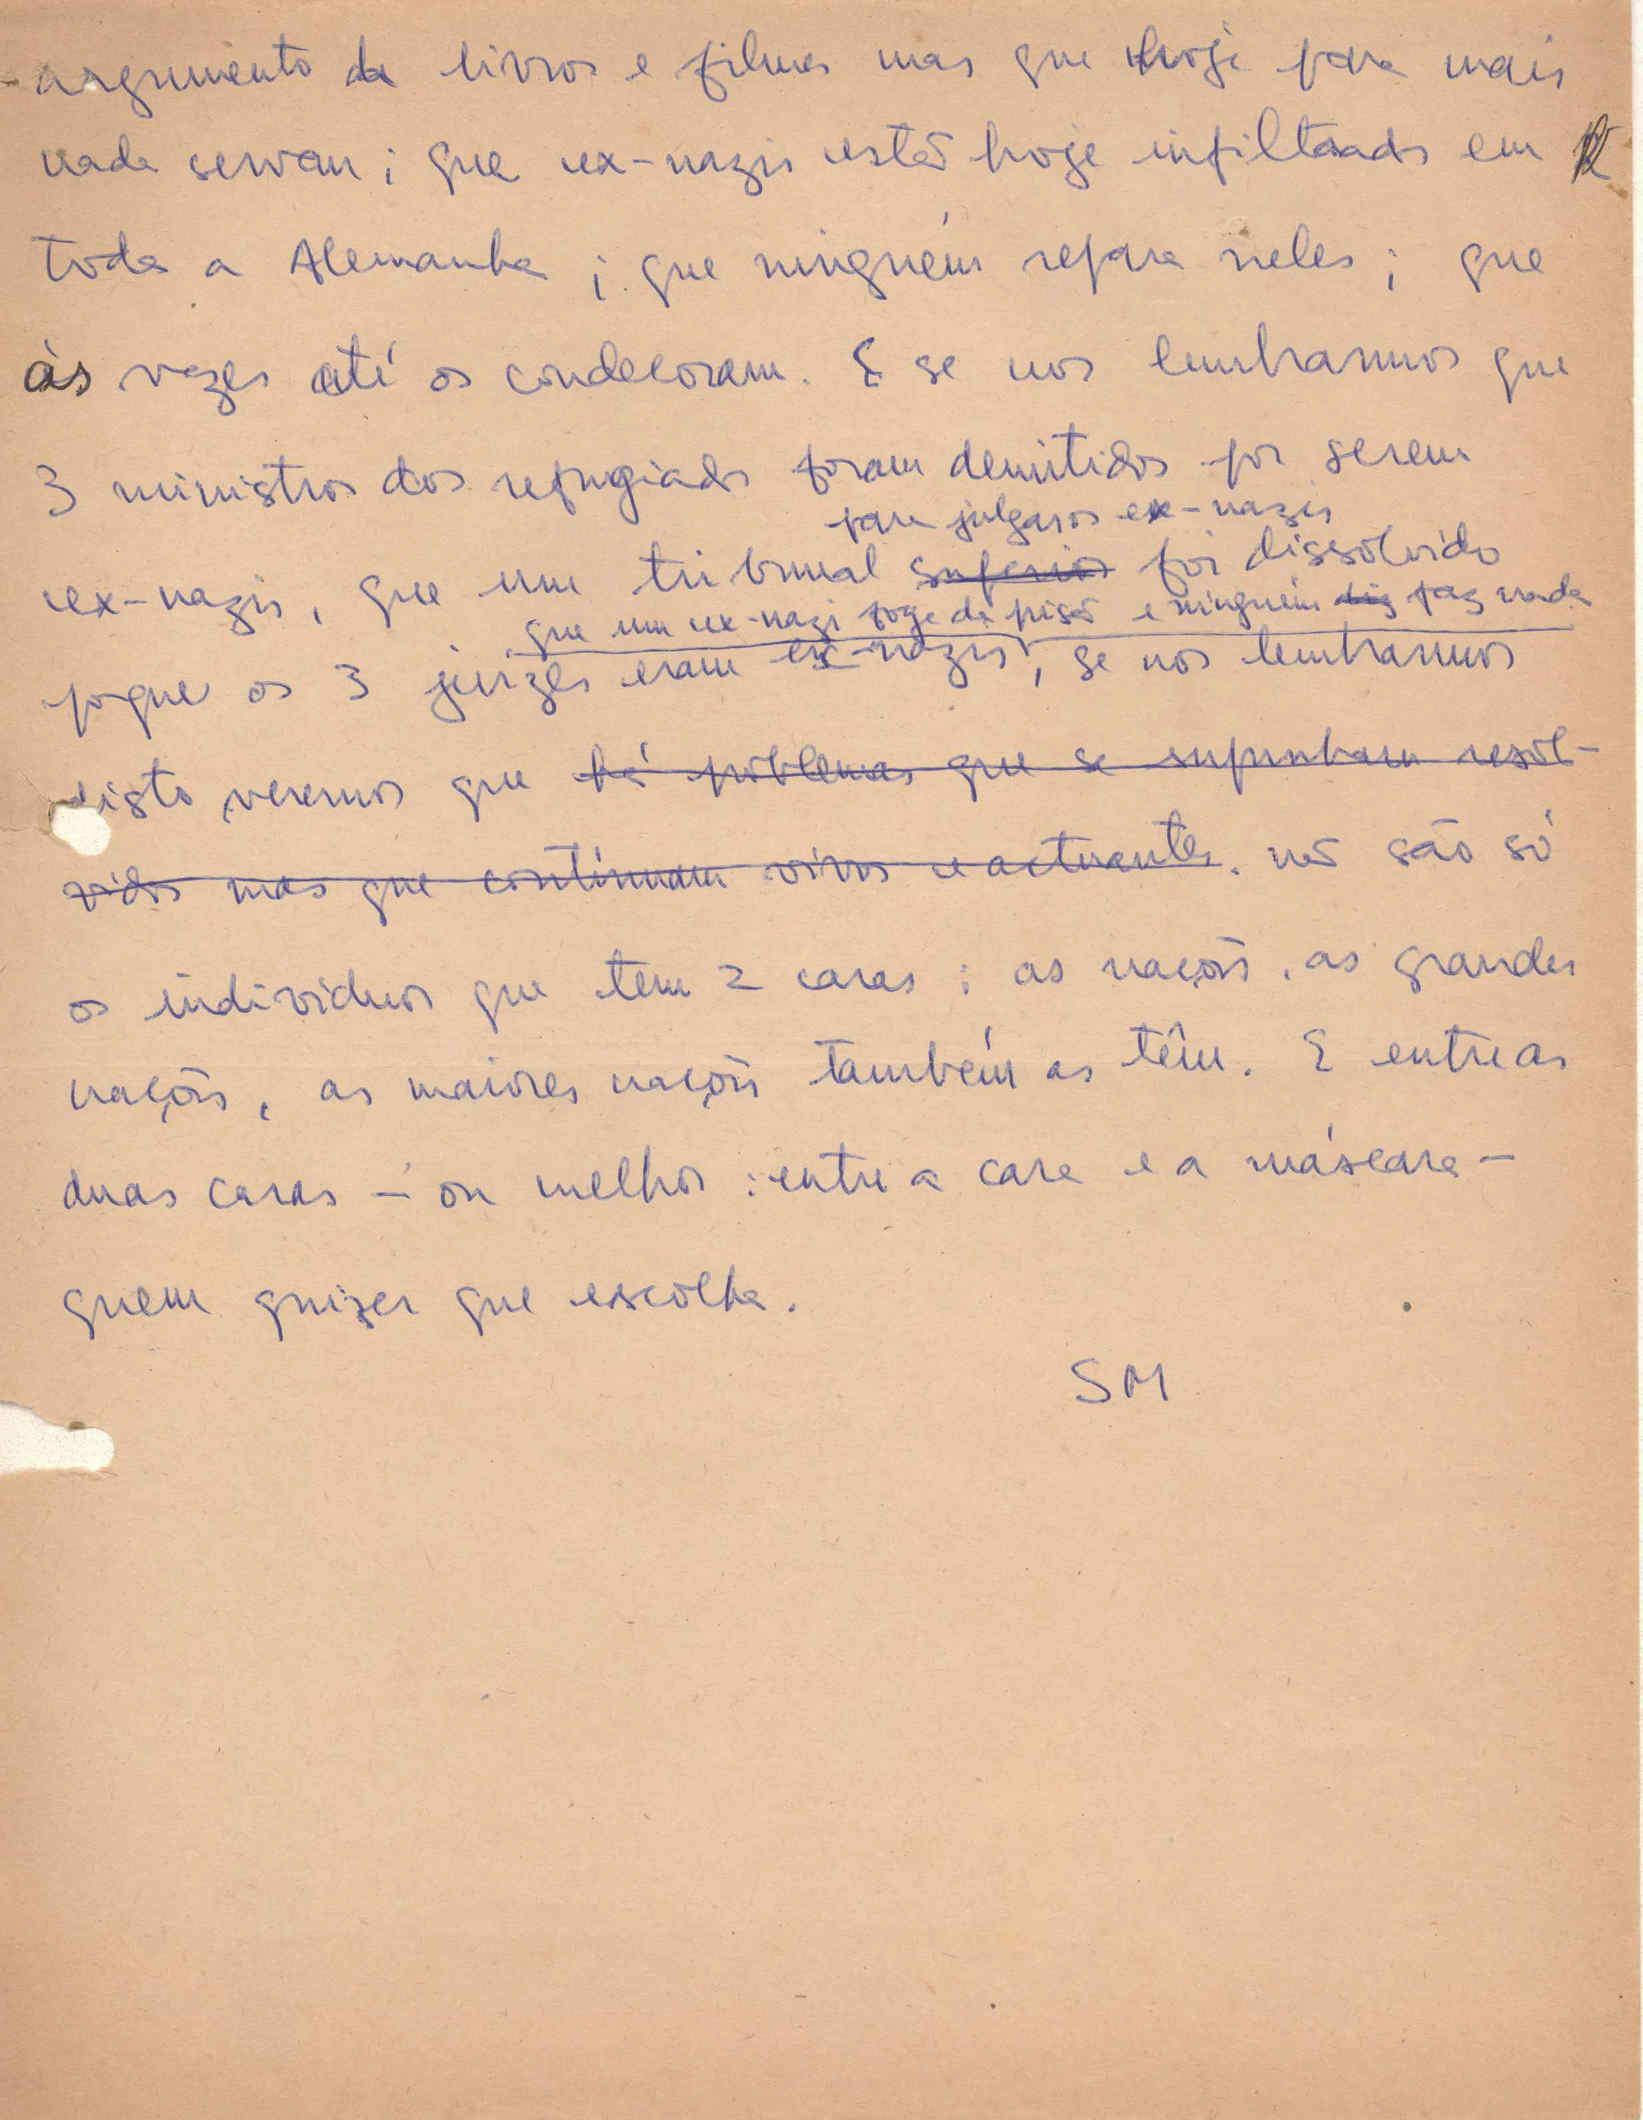 argumento de livros e filmes mas que hoje para mais
nada servem; que ex-nazis estão hoje infiltrados em
toda a Alemanha; que ninguém repara neles; que
às vezes até os condecoram. E se nos lembrarmos que
3 ministros dos refugiados foram demitidos por serem
para julgar os ex-nazis
ex-nazis, que um tribunal superior foi dissolvido
que um ex-nazi foge da prisão e ninguém diz faz nada
porque os 3 juízes eram ex-nazis, se nos lembrarmos
disto veremos que há problemas que se supunham resol-
vidos mas que continuam vivos e actuantes. não são só
os indivíduos que tem 2 caras: as nações, as grandes
nações, as maiores nações também as têm. E entre as
duas caras – ou melhor: entre a cara e a máscara –
quem quizer que escolha.
SM